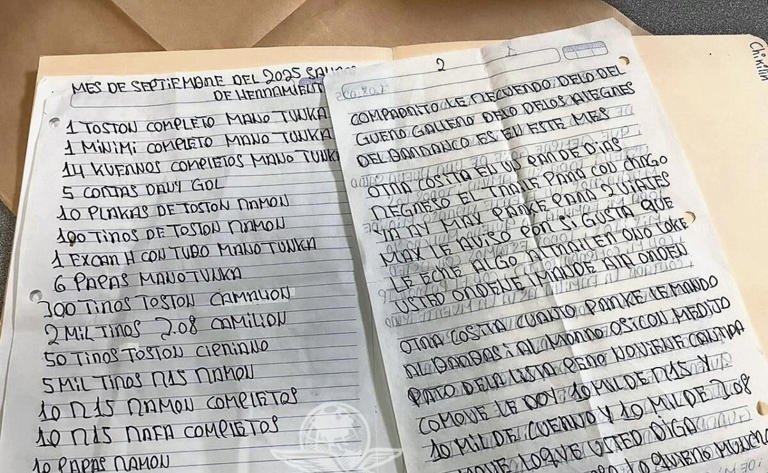 MES DE SEPTIEMBRE DEL 2025
DE HERRAMIENT
1 TOSTON COMPLETO MANO TUNKA
1 MINIMI COMPLETO MANO TUNKA
14 KUERNOS COMPLETOS MANO TUNK
5 CORTAS DAVY GOL
10 PLAKAS DE TOSTON RAMON
100 TIROS DE TOSTON RAMON
1 EXCAR H CON TUBO MANO TUNKA
6 PAPAS MANO TUNKA
300 TIROS TOSTON CAMALION
2 MIL TIROS 7.08 CAMILION
50 TIROS TOSTON CIPRIANO
5 MIL TIROS R15 RAMON
10 R15 RAMON COMPLETOS
10 R15 RAFA COMPLETOS
10 PAPAS RAMON
2
COMPADRITO LE RECUERDO DELO DEL
GUERO GALLERO DELO DELOS ALEGRES
DEL BARRANCO ES EN ESTE MES
OTRA COSITA EN UN PAR DE DIAS
REGRESO EL TRAILE PARA CON CHAGO
Y AY MAX PARKE PARA 2 VIAJES
MAX LE AVISO POR SI GUSTA QUE
LE ECHE ALGO AL TRAILER ONO LOKE
USTED ORDENE MANDE UNA ORDEN
OTRA COSITA CUANTO PARKE LE MANDO
AL BARBAS I AL MORRO OSI CON MEDITO
PATO DELA LISTA PERO NO VIENE CANTIDA
COMO VE LE DOY 10 MIL DE R15 Y
10 MIL DE CUERNO Y 10 MIL DE 7.08
LO QUE USTED DIGA
Chikilin